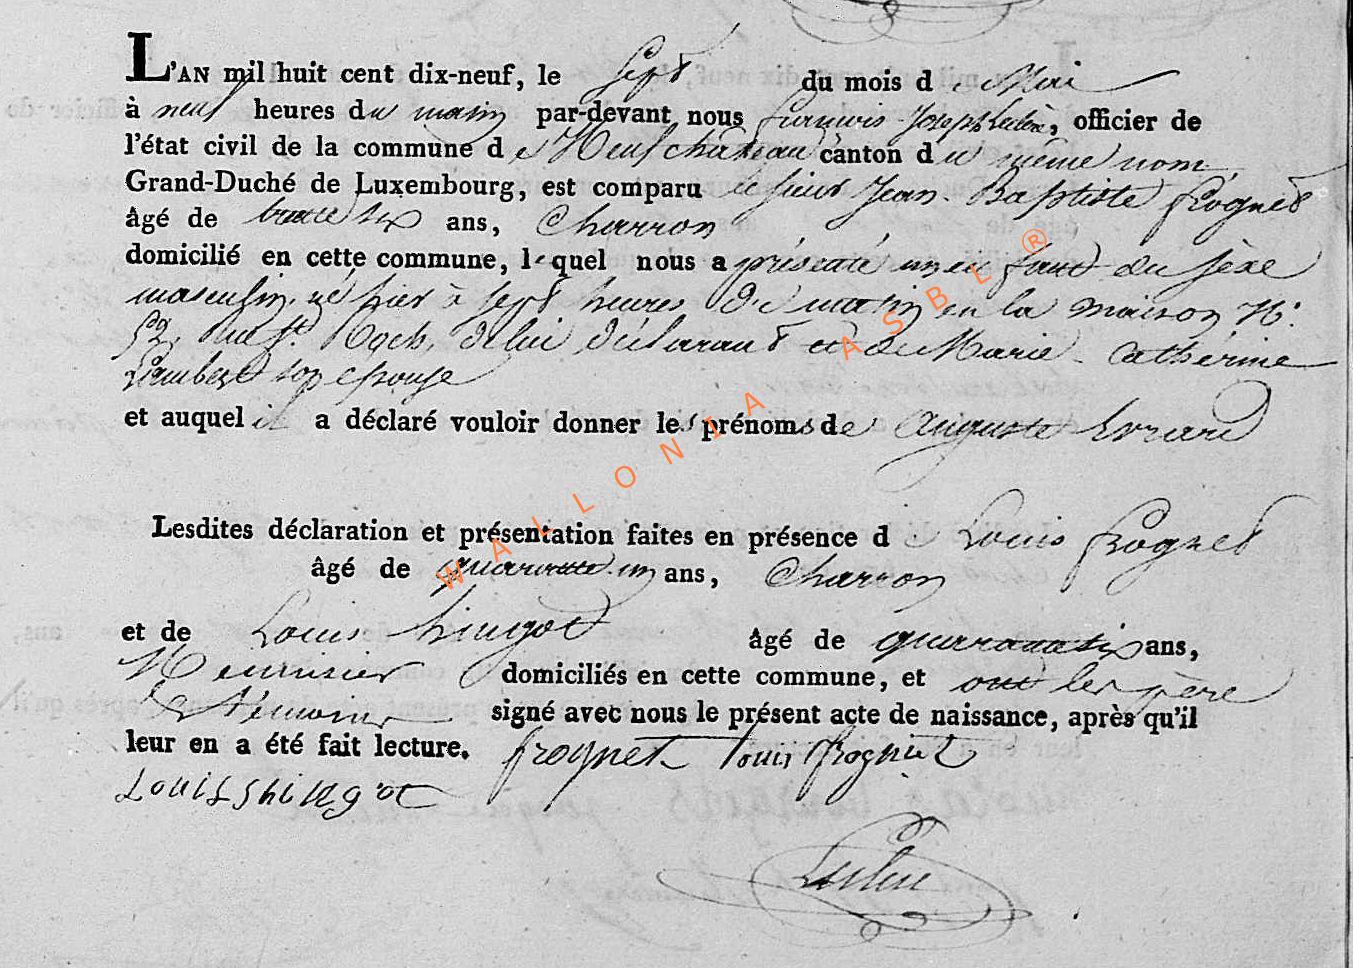 L'AN mil huit cent dix-neuf, le Sept du mois de Mai
à neuf heures du matin par-devant nous François Joseph, officier de
l'état civil de la commune de Neufchâteau canton du même nom,
Grand-Duché de Luxembourg, est comparu le sieur Jean Baptiste Frognet
âgé de trente six ans, Charron
domicilié en cette commune, lequel nous a présenté un enfant du sexe
masculin, né hier à sept heures du matin en la maison N°.
52, Rue St. Roch, de lui déclarant et de Marie Catherine
Lambert son épouse
et auquel il a déclaré vouloir donner les prénoms de Auguste Evrard
Lesdites déclaration et présentation faites en présence de Louis Frognet
âgé de quarante un ans, Charron
et de Louis hingot âgé de quarante six ans,
Menuisier domiciliés en cette commune, et ont les père
et témoins signé avec nous le présent acte de naissance, après qu'il
leur en a été fait lecture. frognet Louis frognet
Louis hingot
WALLONIA ASBL ®